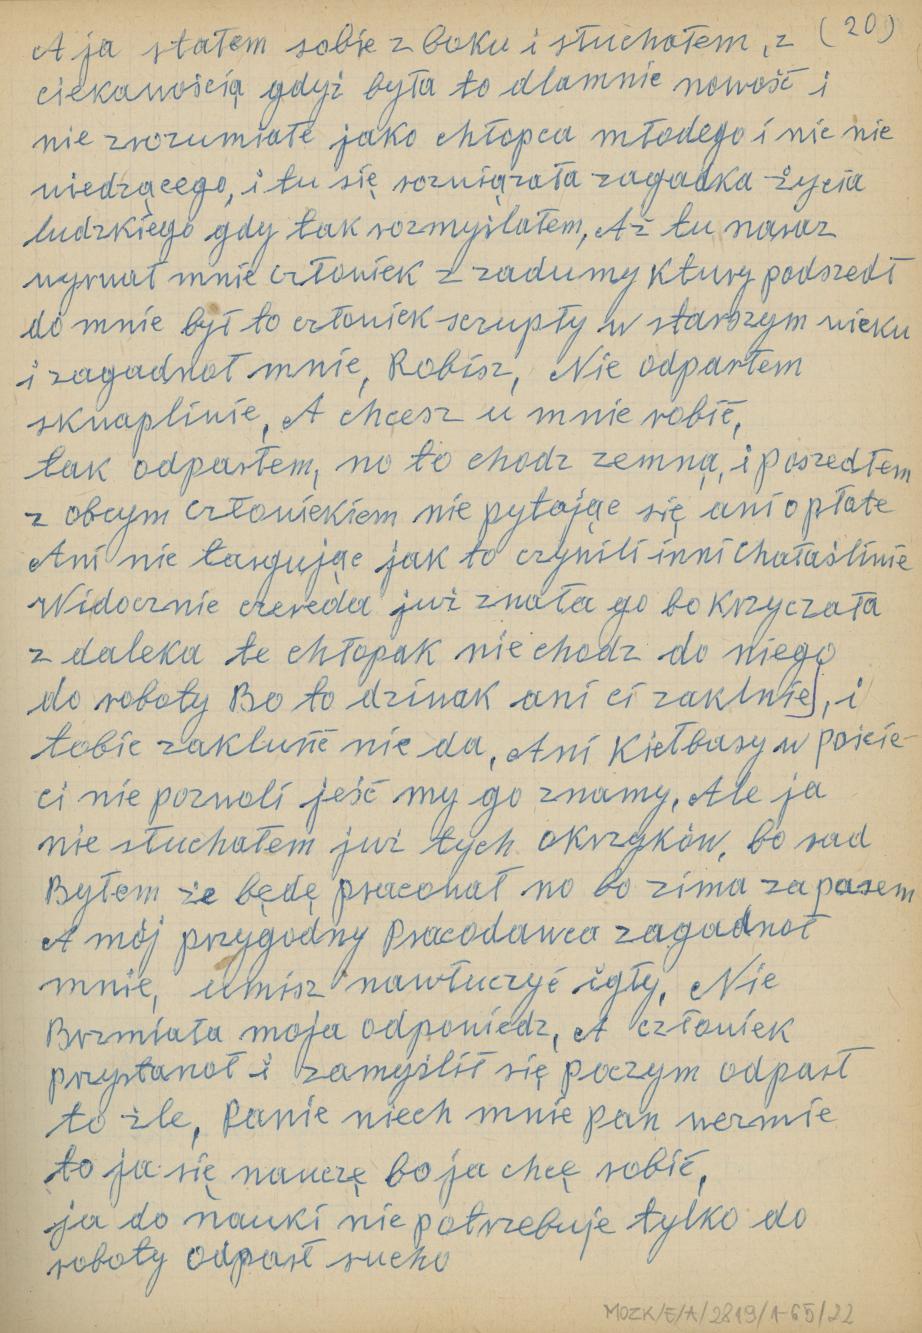 (20)
A ja stałem sobie z boku i słuchałem, z
ciekawością gdyż była to dlamnie nowość i
nie zrozumiałe jako chłopca młodego i nic nie
wiedzącego, i tu się rozwiązała zagadka życia
ludzkiego gdy tak rozmyślałem, Aż tu naraz
wyrwał mnie człowiek z zadumy ktury podszedł
do mnie był to człowiek scrupły w starszym wieku
i zagadnoł mnie, Robisz, Nie odparłem
skwapliwie, A chcesz u mnie robić,
tak odparłem, no to chodz zemną, i poszedłem
z obcym człowiekiem nie pytając się ani o płate
Ani nie targując jak to czynili inni chałaśliwie
Widocznie czereda już znała go bo krzyczała
z daleka te chłopak nie chodz do niego
do roboty Bo to dziwak ani ci zaklnie, i
tobie zakluńć nie da, Ani Kiełbasy w poicie-
ci nie pozwoli jeść my go znamy, Ale ja
nie słuchałem już tych okrzyków, bo rad
Byłem że będę pracował no bo zima za pasem
A mój przygodny Pracodawca zagadnoł
mnie, umisz nawłuczyć igły, Nie
Brzmiała moja odpowiedz, A człowiek
przystanoł i zamyślił się poczym odparł
to żle, Panie niech mnie pan wezmie
to ja się nauczę bo ja chcę robić,
ja do nauki nie potrzebuje tylko do
roboty odparł sucho
MOZK/E/A/2819/1-65/22